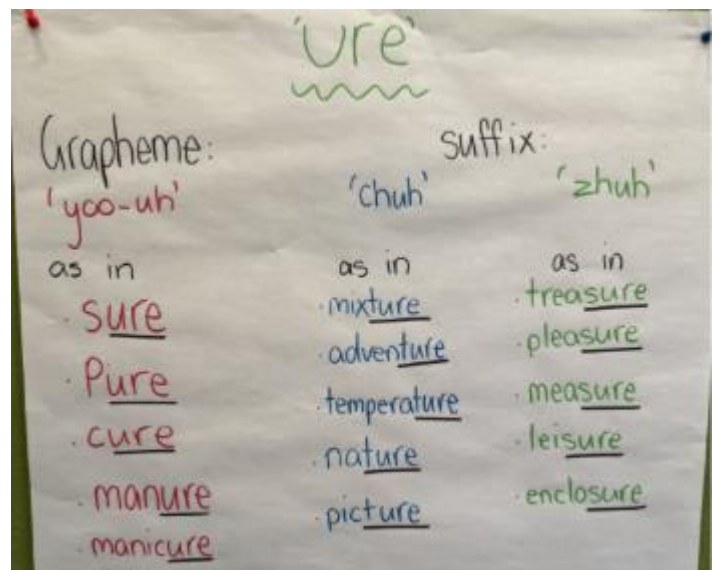 'ure'
Grapheme:
'yoo-uh'
as in
· sure
· Pure
· cure
· manure
· manicure
suffix:
'chuh'
as in
· mixture
· adventure
· temperature
· nature
· picture
'zhuh'
as in
· treasure
· pleasure
· measure
· leisure
· enclosure